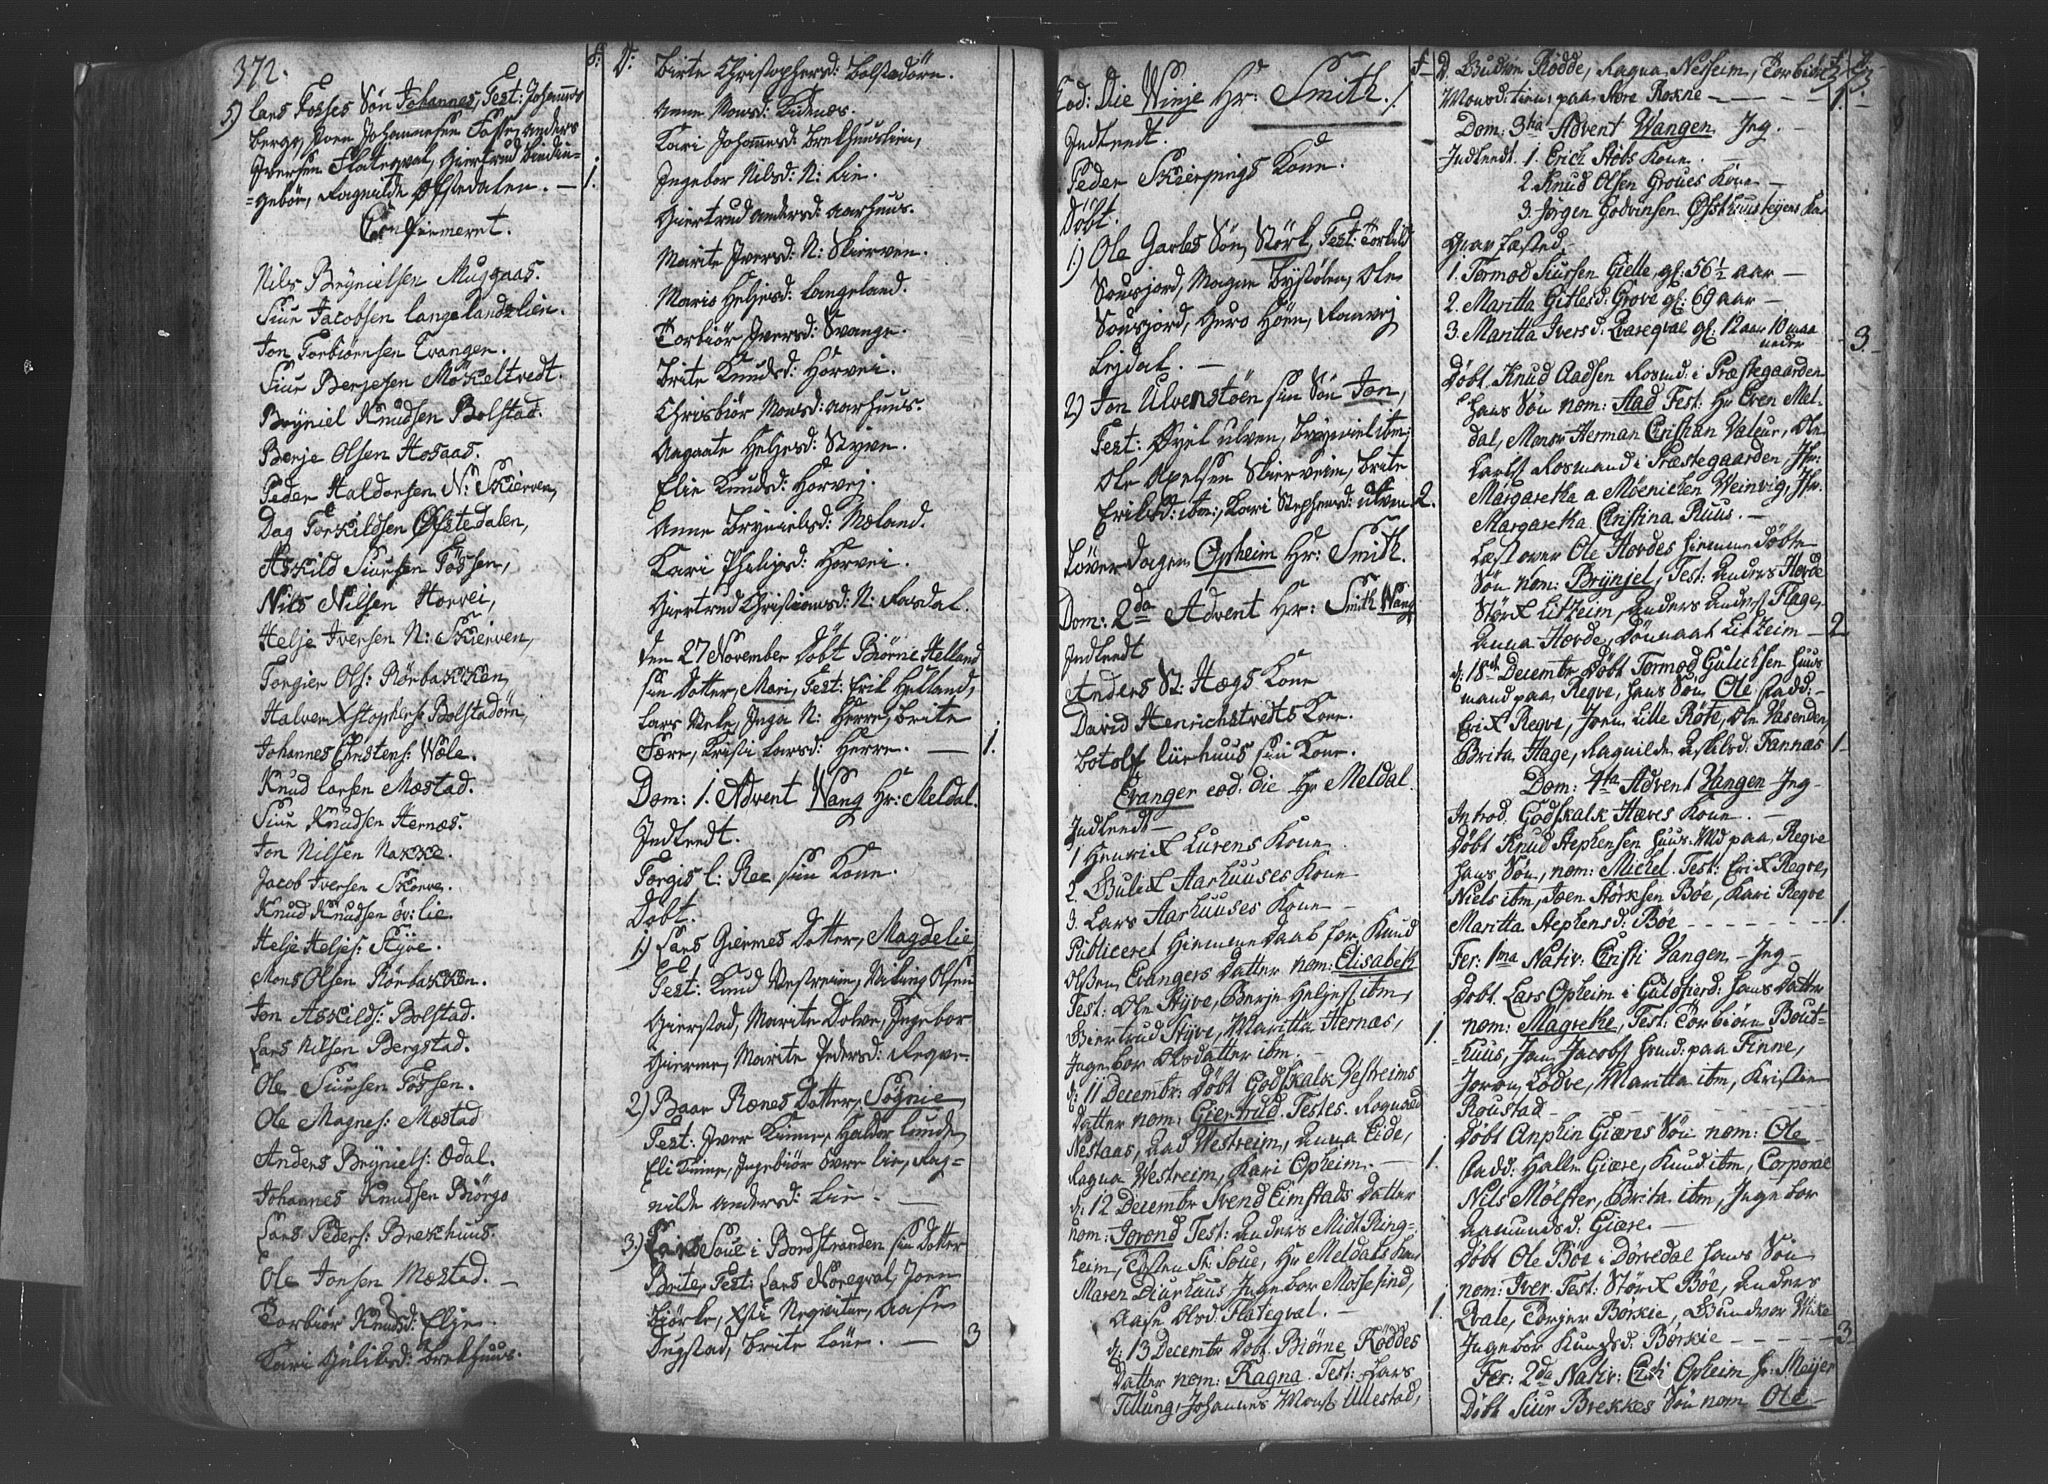 372.
5) Lars Fosses Søn Johannes, Test: Johannes
Berge, Iven Johannesen Fosse, Anders
Iversen Flateqval, Giertrud Vindin=
=gebør, Ragnilde Øfstedalen. — 1.
Confirmeret.
Nils Brynielsen Muggaas.
Siur Jacobsen Langelandslien.
Jon Torbiørnsen Evanger.
Siur Berjesen Møkeltvedt.
Bryniel Knudsen Bolstad.
Berje Olsen Hosaas.
Peder Haldorsen N: Skierven,
Dag Torkildsen Øfstedalen,
Askild Siursen Fossen,
Nils Nilsen Horvei,
Helje Iversen N: Skierven,
Torgier Ols: Rørbakken,
Halver Xstophers: Bolstadørn,
Johannes Christens: Wæle.
Knud Larsen Mæstad.
Siur Knudsen Hernæs.
Jon Nilsen Nakke.
Jacob Iversen Skorve.
Knud Knudsen øv: Lie.
Helje Heljes: Styve.
Mons Olsen Rørbakken.
Jon Askilds: Bolstad.
Lars Nilsen Bergstad.
Ole Siursen Fossen.
Ole Magnes: Mæstad
Anders Bryniels: Odal.
Johannes Knudsen Biørgo
Lars Peders: Brekhuus.
Ole Jonsen Mæstad. —
Torbiør Knudsd: Elje.
Kari Guliksd: Brekhuus.
S: D:
Birte Christophersd: Bolstadørn.
Anne Monsd: Kidnæs.
Kari Johannesd: Brekhuuslien,
Ingebor Nilsd: N: Lie.
Giertrud Andersd: Aarhuus.
Marite Iversd: N: Skierven.
Maria Heljesd: Langeland.
Torbiør Iversd: Svange.
Brite Knudsd: Horvei.
Chrisbiør Monsd: Aarhuus.
Aagaate Heljesd: Styve.
Elie Knudsd: Horvej.
Anne Brynielsd: Mæland.
Kari Philipsd: Horvei.
Giertrud Christiansd: N: Fasdal.
Den 27 November Døbt Biørne Helland
sin Dotter, Mari, Test: Erik Helland,
Lars Mele, Inga N: Herre, Brite
Fære, Kristi Larsd: Herre. — 1.
Dom: 1. Advent Wang Hr: Meldal.
Indleedt.
Torgis l: Ree sin Kone.
Døbt.
1) Lars Giermes Dotter, Magdelie
Test: Knud Vestreim, Viking Olsen
Gierstad, Marite Dolve, Ingebor
Gierme, Marite Pedersd: Regve.
2) Baar Rænes Dotter, Søgnie
Test: Iver Kinne, Haldor Lunde,
Eli Kinne, Ingebiør øvre Lie, Rag=
nilde Andersd: Lie. —
3.) Lars Soue i Bordstranden sin Dotter
Brite, Test: Lars Noreqval, Joen
Biørke, Xsti Negviter, Aase
Dugstad, Brite Løne. — 3
Eod: Die Winje Hr: Smith.
Indleedt.
Peder Skierpings Kone.
Døbt.
1) Ole Gavles Søn, Størk, Test: Torkild
Sousjord, Magne Bystølen, Ole
Sousjord, Guro Høen, Ranvej
Lejdal. —
2) Jon Ulvenstøen sin Søn Jon,
Test: Øyel Ulven, Bryniel ibm,
Ole Apelsen Skierveim, Brite
Eriksd: ibm:, Kari Stephensd: Ulven 2.
Løverdagen Opheim Hr: Smith.
Dom: 2da Advent Hr: Smith Wang
Indleedt
Anders St: Hægs Kone
David Henrichstvedts Kone.
Botolf Liirhuus sin Kone.
Evanger eod: die Hr Meldal.
Indleedt —
1 Henrik Lurens Kone.
2. Gulik Aarhuuses Kone
3. Lars Aarhuuses Kone —
Publiceret Hiemmedaab for Knud
Olsen Evangers Datter nom: Elisabeth
Test: Ole Styve, Berje Heljes: ibm,
Giertrud Styve, Maritta Hernæs,
Ingebor Olsdatter ibm. — 1.
d: 11 Decembr: Døbt Godskalk Vestreims
Datter nom: Giertrud. Testes. Rognald
Nestaas, Aad Westreim, Anna Eide,
Ragna Westreim, Kari Opheim. — 1.
d: 12 Decembr Svend Eimstads Datter
nom: Jorend Test: Anders Midt Ring=
heim, Tosten St: Soue, Hr Meldals
Maren Diurhuus, Ingebor Mossefind,
Aase Olsd: Flateqval. — 1.
d: 13 Decembr Døbt Biørne Røddes
Datter nom: Ragna. Test: Lars
Tillung, Johannes Mons: Ullestad,
S D. Gudve Rødde, Ragna Nesheim, Torbiør
Monsd: tien: paa Store Rokne — 1.
Dom: 3tia Advent Wangen Jeg. —
Indleedt. 1. Erich Støls Kone. —
2. Knud Olsen Groves Kone —
3. Jørgen Godvinsen Østhuusteigens Kone
Grav Fæsted.
1. Tormod Siursen Gielle, gl: 56½ aar —
2. Maritta Gitlesd: Grove gl: 69 aar —
3. Maritta Ivers d: Qvareqval gl: 12 aar 10 maa
neder — 3.
Døbt. Knud Aadsen Rosmd: i Præstegaarden
hans Søn nom: Aad Test: Hr Even Mel-
dal, Monsr Herman Christian Valeur, Ole
Larls: Rosmand i Præstegaarden, Jfr:
Margaretha a Møinichen Weinvig, Jfr.
Margaretha Christina Ruus. —
Læst over Ole Hordes hiemme Døbte
Søn nom: Brynjel, Test: Anders Horde
Størk Litzeim, Anders Anders: Flage,
Anna Horde, Dønnaat Litzeim — 2
d: 18de Decembr Døbt Tormod Gulichsen Huus
mand paa Regve, hans Søn, Ole Fadd: —
Erik Regve, Joen Lille Røte, Ole Vasenden,
Brita Flage, Raguilde Askilsd: Fannæs 1.
Dom: 4ta Advent Vangen Jeg —
Introd. Godskalk Hæves Kone. —
Døbt Knud Stephensen Huus: Md paa Regve
hans Søn, nom: Michel. Test: Erik Regve,
Niels ibm, Joen Størksen Bøe, Kari Regve
Maritta Stephensd: Bøe — 1.
Fer: 1ma Nativ: Christi Vangen — Jeg —
Døbt. Lars Opheim i Gulsfierd: hans Datter
nom: Magrethe, Test: Torbiørn Bout-
=huus, Jan Jacobs: Grud: paa Finne,
Joron Lødve, Maritta ibm, Kristie
Roustad —
Døbt Anphin Giæres Søn nom: Ole
Fadd: Halle Giære, Knud ibm, Corporal
Nils Mølster, Brita ibm, Ingebor
Aamundsd: Giære. —
Døbt Ole Bøe i Dørvedal hans Søn
nom: Iver. Test: Størk Bøe, Anders
Qvale, Torger Borkie, Gundvor Vike
Ingebor Knudsd: Borkie — 3
Fer: 2da Nativ: Christi Opheim Hr: Meijer
Døbt Siur Brekkes Søn nom Ole